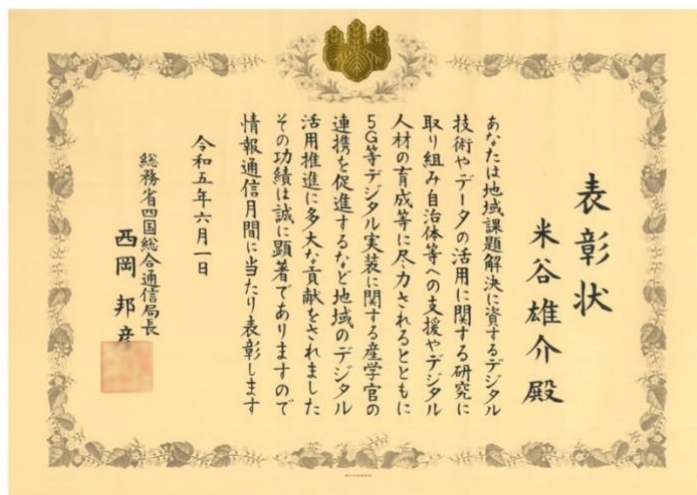 表彰状
米谷雄介殿
あなたは地域課題解決に資するデジタル
技術やデータの活用に関する研究に
取り組み自治体等への支援やデジタル
人材の育成等に尽力されるとともに
5G等デジタル実装に関する産学官の
連携を促進するなど地域のデジタル
活用推進に多大な貢献をされました
その功績は誠に顕著でありますので
情報通信月間に当たり表彰します
令和五年六月一日
総務省四国総合通信局長
西岡邦彦